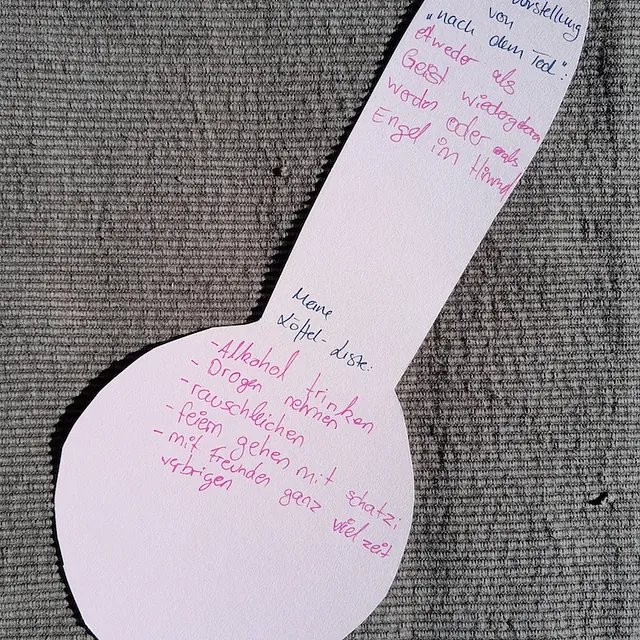 Vorstellung
von
„nach dem Tod“:
etweder als
Geist wiedergeboren
werden oder als
Engel im Himmel
Meine
Löffel-Liste:
- Allkohol trinken
- Drogen nehmen
- rauschleichen
- feiern gehen mit schatzi
- mit Freunden ganz viel zeit
verbrigen